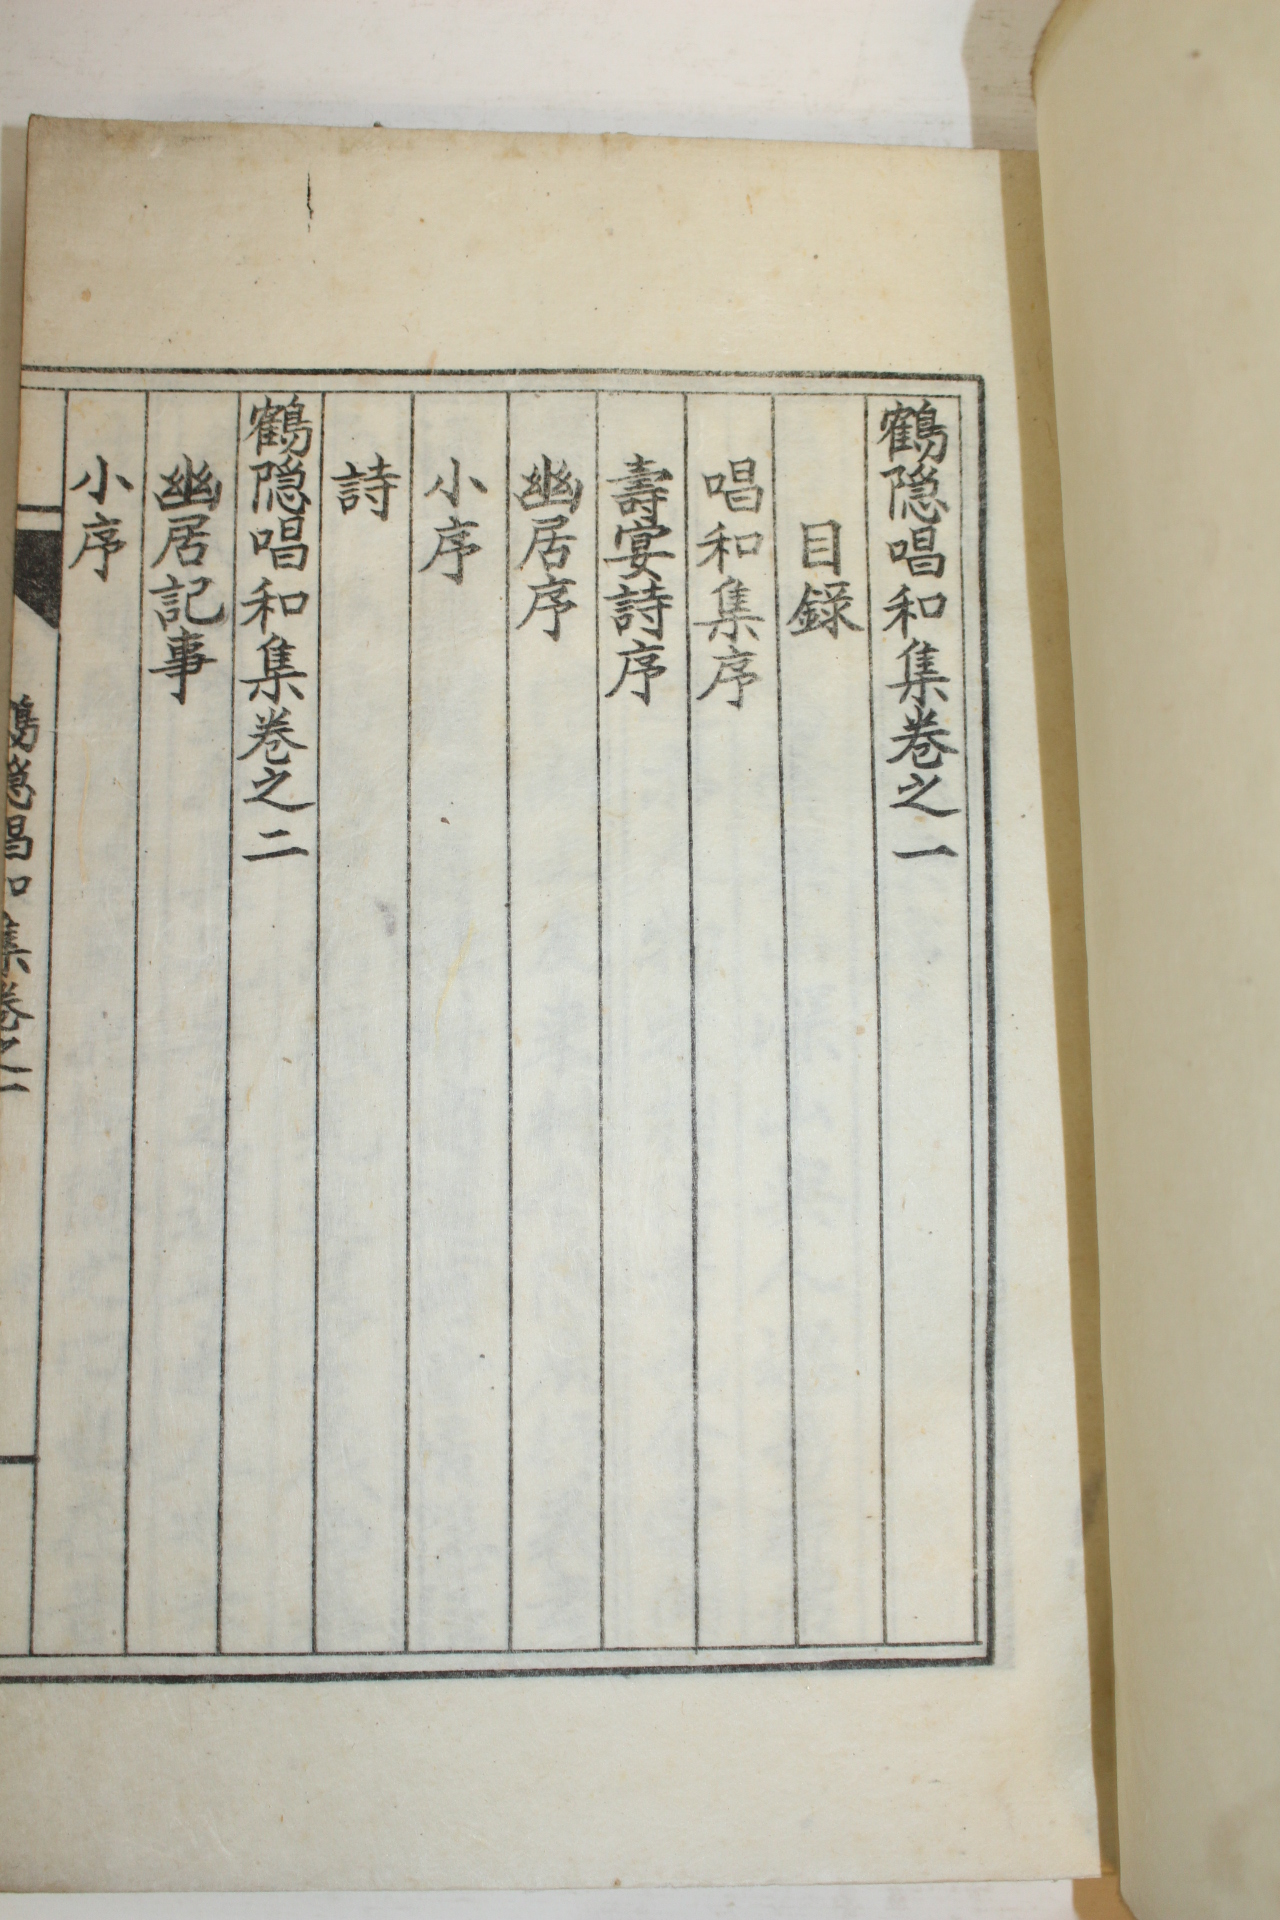 鶴隐唱和集卷之一
目録
唱和集序
壽宴詩序
幽居序
小序
詩
鶴隐唱和集卷之二
幽居記事
小序
鶴隐唱和集卷之一